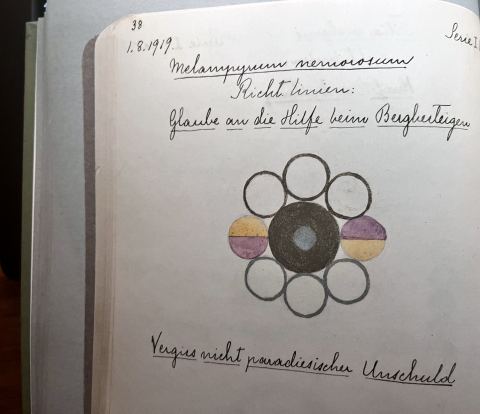 38
1.8.1919.
Serie I
Melampyrum nemorosum
Richtlinien:
Glaube an die Hilfe beim Bergbesteigen
Vergiss nicht paradiesischer Unschuld